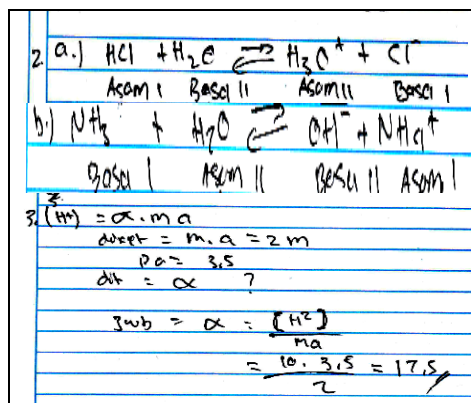 2. a.) HCl + H2O ⇌ H3O+ + Cl-
Asam I Basa II Asam II Basa I
b.) NH3 + H2O ⇌ OH- + NH4+
Basa I Asam II Basa II Asam I
3. (H+) = α . ma
diket = m.a = 2 m
Pa = 3,5
dit = α ?
Jwb = α = [H2]
ma
= 10. 3,5 = 17,5
2